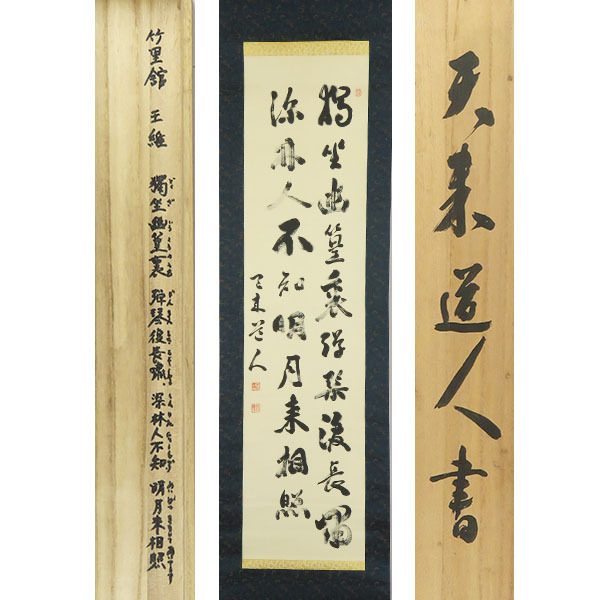 竹里館 王維 獨坐幽篁裏 弾琴復長嘯、深林人不知 明月来相照
獨坐幽篁裏弾琴復長嘯
深林人不知明月来相照
天来道人
天来道人書